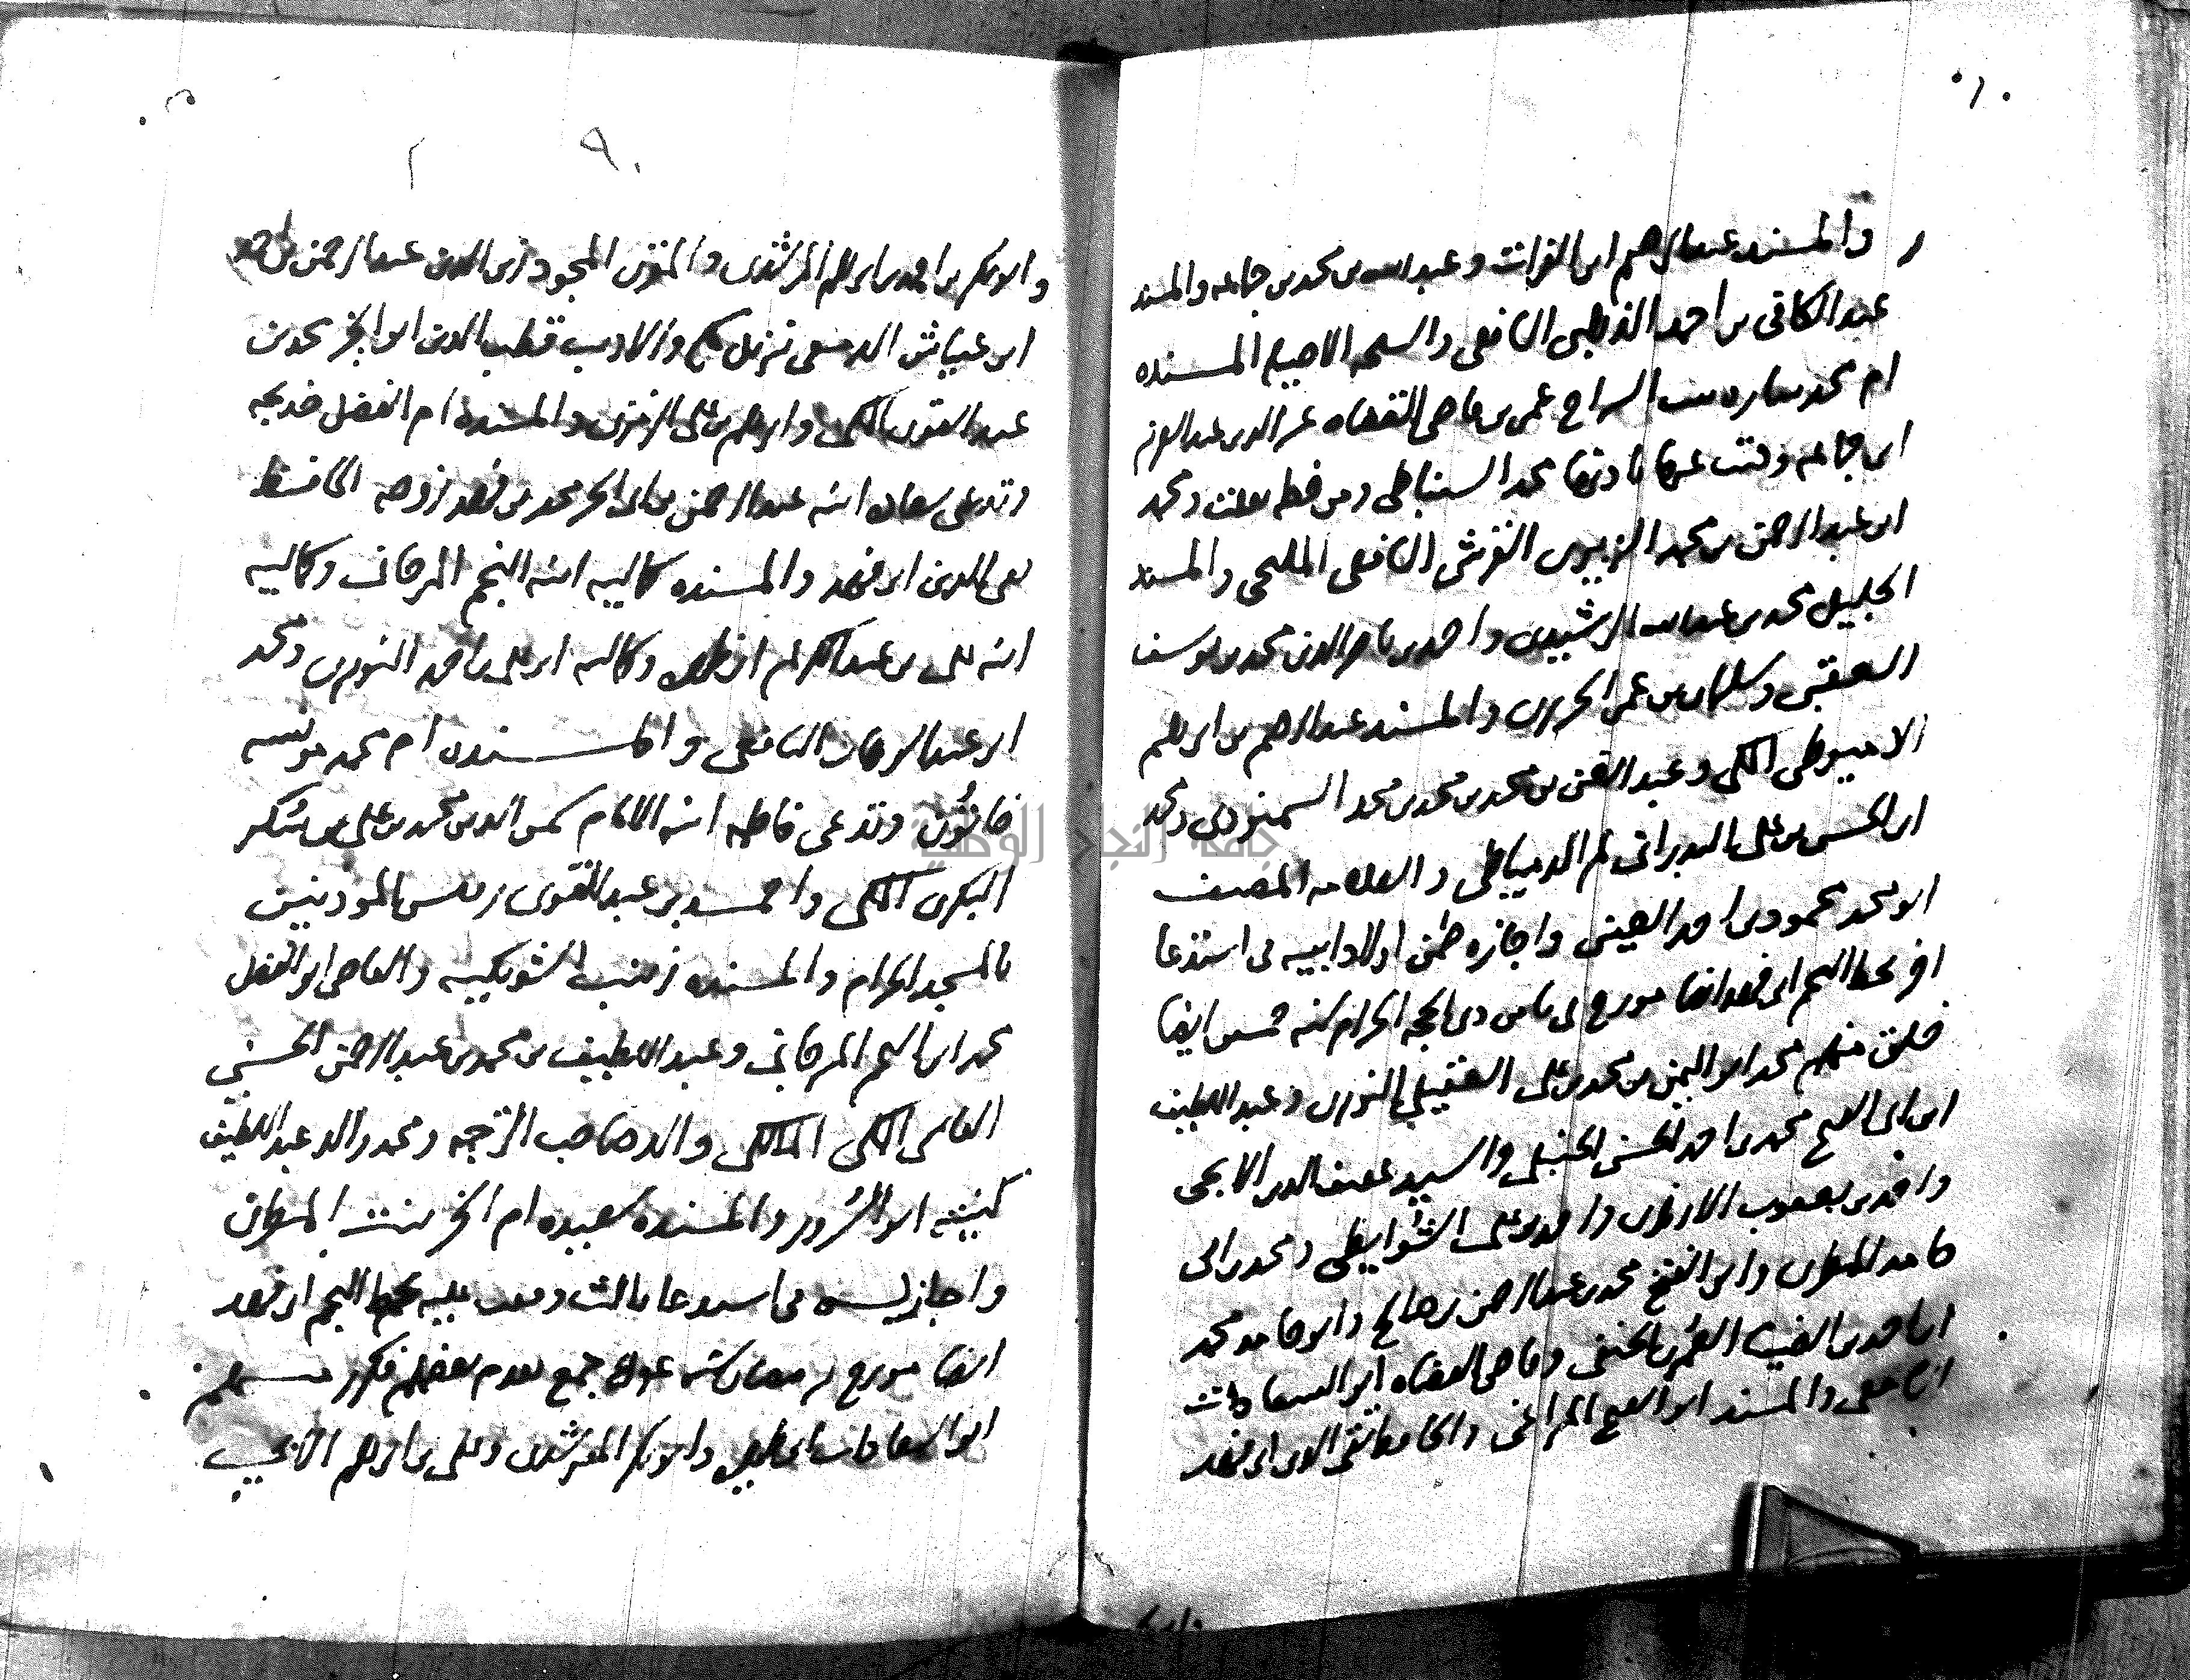 والمسند عبد الرحيم ابن الفرات وعبد الله بن محمد بن جماعه والمسند
عبد الكافي بن احمد الذهبي الشافعي والشيخه الاصيله المسنده
ام محمد ساره بنت السراج عمر بن قاضي القضاه عز الدين عبد العزيز
ابن جماعه وكتب عنها باذنها محمد السنباطي ومن خطه نقلت ومحمد
ابن عبد الرحمن بن محمد الزبيري القرشي الشافعي المليجي والمسند
الجليل محمد بن عبد الله الرشيدي واحمد بن ناصر الدين محمد بن يوسف
العقبي وسليمان بن عمر الحريري والمسند عبد الرحيم بن ابرهيم
الاميوطي المكي وعبد الغني بن محمد بن محمد بن محمد السمنودي ومحمد
ابن الحسن بن علي البدراني ثم الدمياطي والعلامه المصنف
ابو محمد محمود بن احمد العيني واجازه ضمن اولاد ابيه في استدعا
اخر بخط النجم ابن فهد ايضا مورخ في ثامن ذي الحجه الحرام سنه خمسين ايضا
خلق منهم محمد ابو اليمن بن محمد بن علي العقيلي النويري وعبد اللطيف
ابن ابي الفتح محمد بن احمد الحسني الحنبلي والسيد عفيف الدين الايجي
واحمد بن يعقوب الاطفيحي واحمد بن علي الشوايطي ومحمد بن ابي
حامد المطري وابو الفتح محمد بن عبد الرحمن بن صالح وابو حامد محمد
ابن احمد بن الضيا العمري الحنفي وقاضي القضاه ابو السعادات
الشافعي والمسند ابو الفتح المراغي والحافظ تقي الدين ابن فهد
وابو بكر بن احمد بن ابرهيم المرشدي والمقرئ المجود زين الدين عبد الرحمن بن احمد
ابن عياش الدمشقي نزيل مكه والاديب قطب الدين ابو الخير محمد بن
عبد القوي المكي وابرهيم بن علي الزمزمي والمسنده ام الفضل خديجه
وتدعى سعاده ابنه عبد الرحمن بن ابي الخير محمد بن فهد زوجه الحافظ
تقي الدين ابن فهد والمسنده كماليه ابنه النجم المرجاني وكماليه
ابنه علي بن عبد الكريم ابن ظهيره وكماليه ابنه علي بن احمد النويري ومحمد
ابن عبد الرحمن الشافعي والمسنده ام محمد مونسه
خاتون وتدعى فاطمه ابنه الامام شمس الدين محمد بن علي بن سكر
البكري المكي واحمد بن عبد القوي رئيس الموذنين
بالمسجد الحرام والمسنده زينب الشويكيه والقاضي ابو الفضل
محمد ابن النجم المرجاني وعبد اللطيف بن محمد بن عبد الرحمن الحسني
الفاسي المكي المالكي والد صاحب الترجمه ومحمد والد عبد اللطيف
كنيته ابو السرور والمسنده سعيده ام الخير بنت المطري
واجاز في استدعا ثالث بخط النجم ابن فهد
ايضا مورخ جمع تقدم بعضهم فكرر منهم
ابو السعادات ابن ظهيره وابو بكر المرشدي وعلي بن ابرهيم